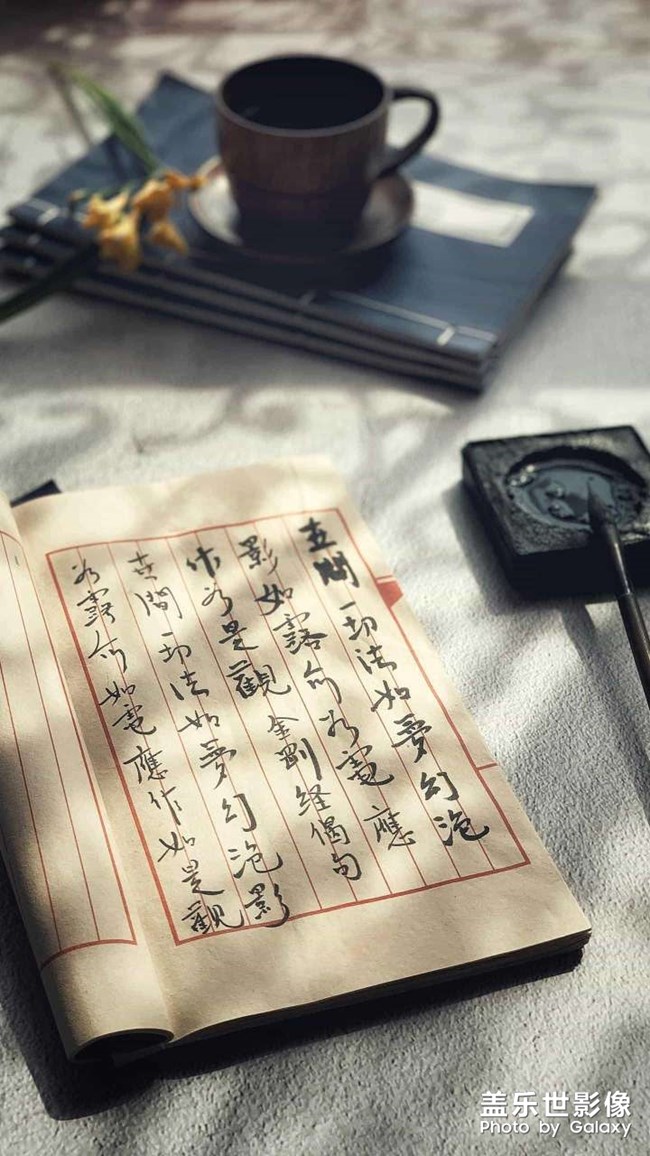 世間一切法如夢幻泡
影如露亦如電應
作如是觀金剛经偈句
世間一切法如夢幻泡影
如露亦如電應作如是觀
盖乐世影像
Photo by Galaxy